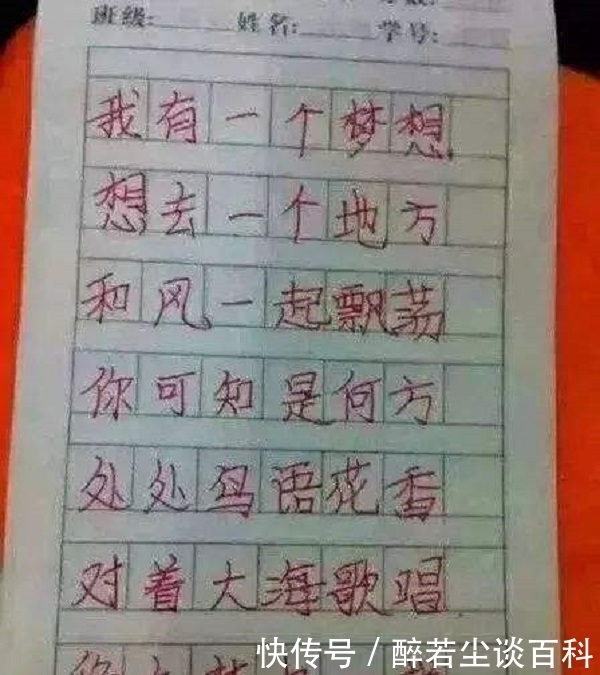 班级: 姓名: 学号:
我有一个梦想
想去一个地方
和风一起飘荡
你可知是何方
处处鸟语花香
对着大海歌唱
快传号/醉若尘谈百科